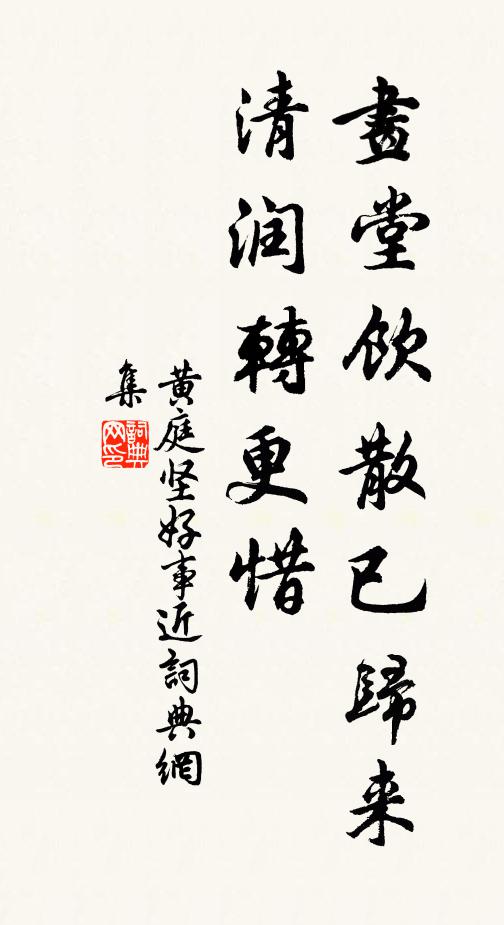 畫堂飲散已歸来
清润轉更惜
黄庭坚好事近詞典網
集
詞典
网印